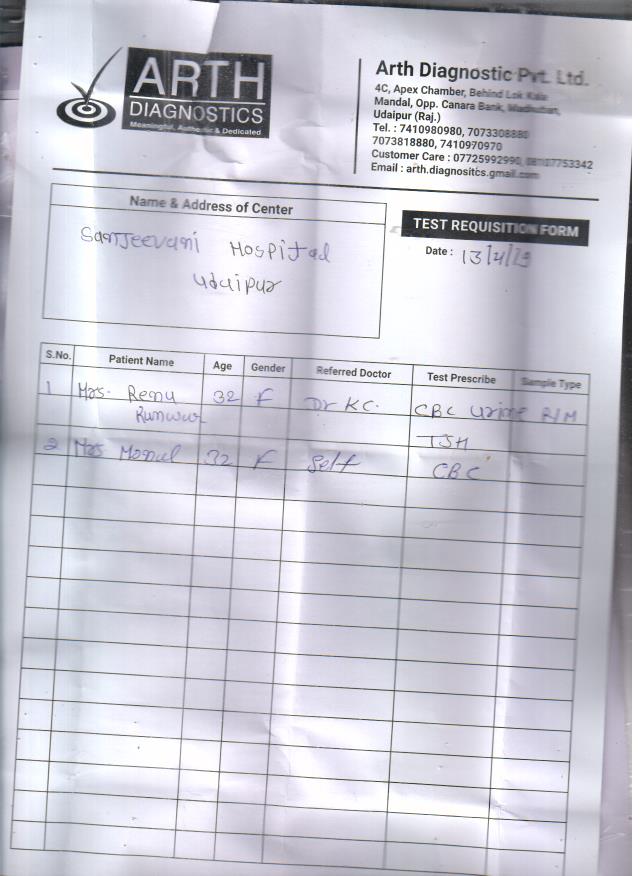 ARTH
DIAGNOSTICS
Meaningful, Authentic & Dedicated
Arth Diagnostic Pvt. Ltd.
4C, Apex Chamber, Behind Lok Kala
Mandal, Opp. Canara Bank, Madhuban,
Udaipur (Raj.)
Tel. : 7410980980, 7073308880
7073818880, 7410970970
Customer Care : 07725992990, 08107753342
Email : arth.diagnositcs.gmail.com
Name & Address of Center
Sanjeevani Hospital
Udaipur
TEST REQUISITION FORM
Date : 13/4/19
S.No. Patient Name Age Gender Referred Doctor Test Prescribe Sample Type
1 Mrs. Renu 32 F Dr KC. CBC Urine R/M
TSH
2 Mrs 32 F Self CBC